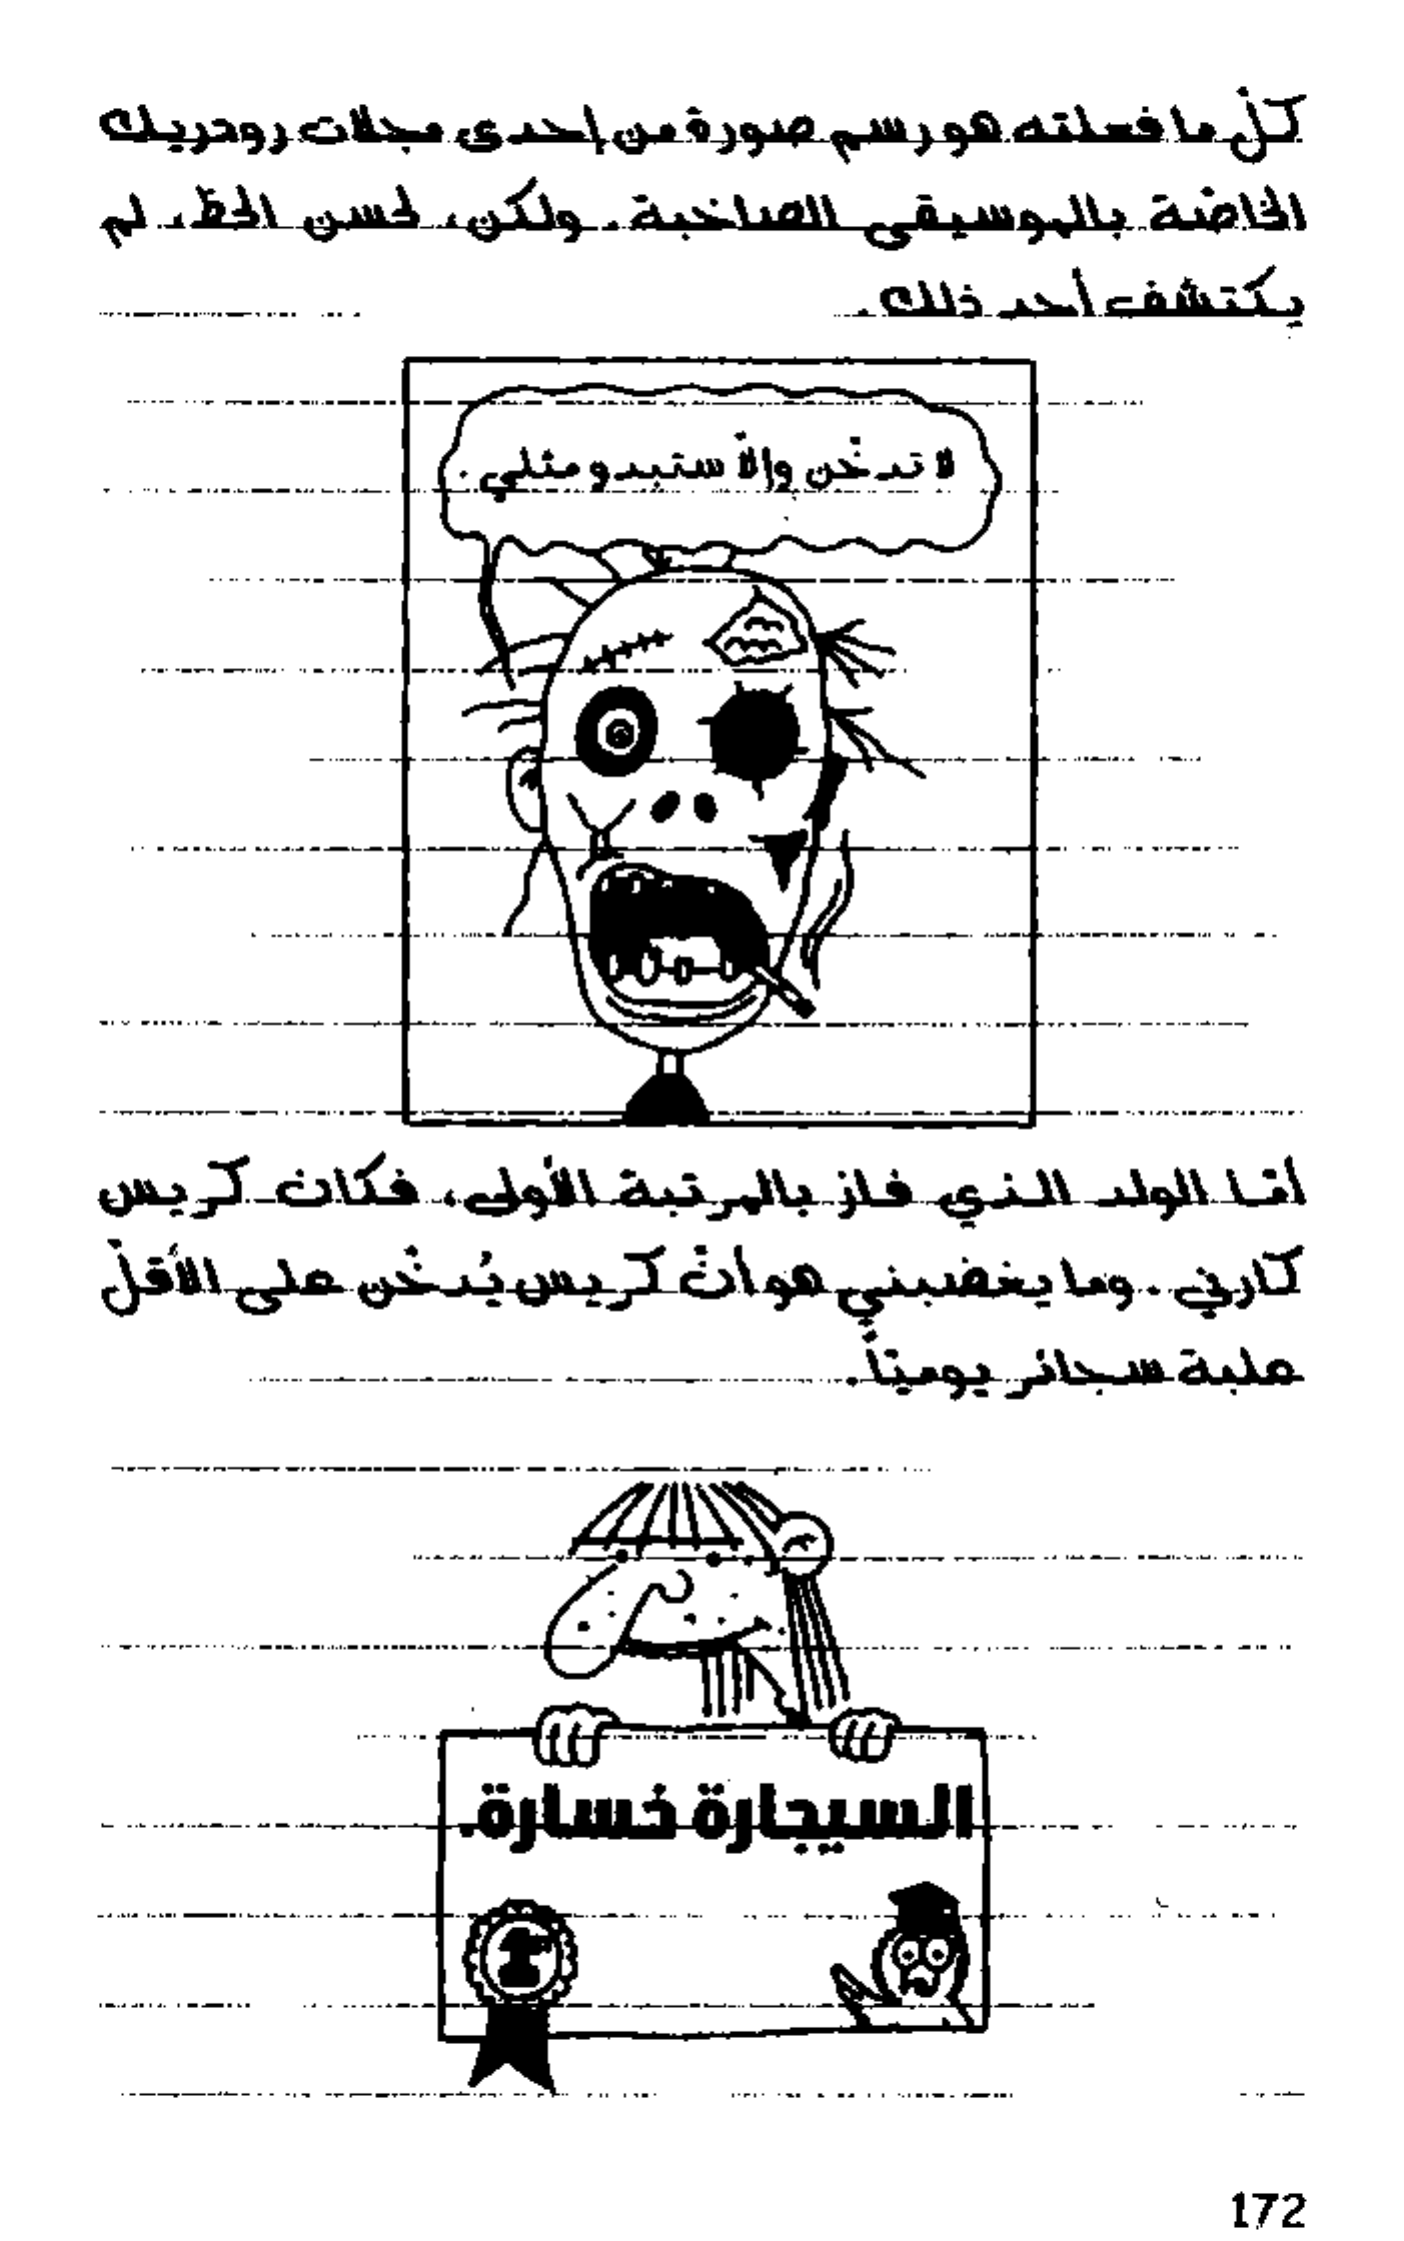 كلّ ما فعلته هو رسم صورة من إحدى مجلات رودريك
الخاصّة بالموسيقى الصاخبة. ولكن، لحسن الحظّ، لم
يكتشف أحد ذلك.
لا تدخّن وإلاّ ستبدو مثلي.
أمّا الولد الذي فاز بالمرتبة الأولى، فكان كريس
كارني. وما يغضبني هو أنّ كريس يُدخّن على الأقلّ
علبة سجائر يوميّاً.
السيجارة خسارة.
172